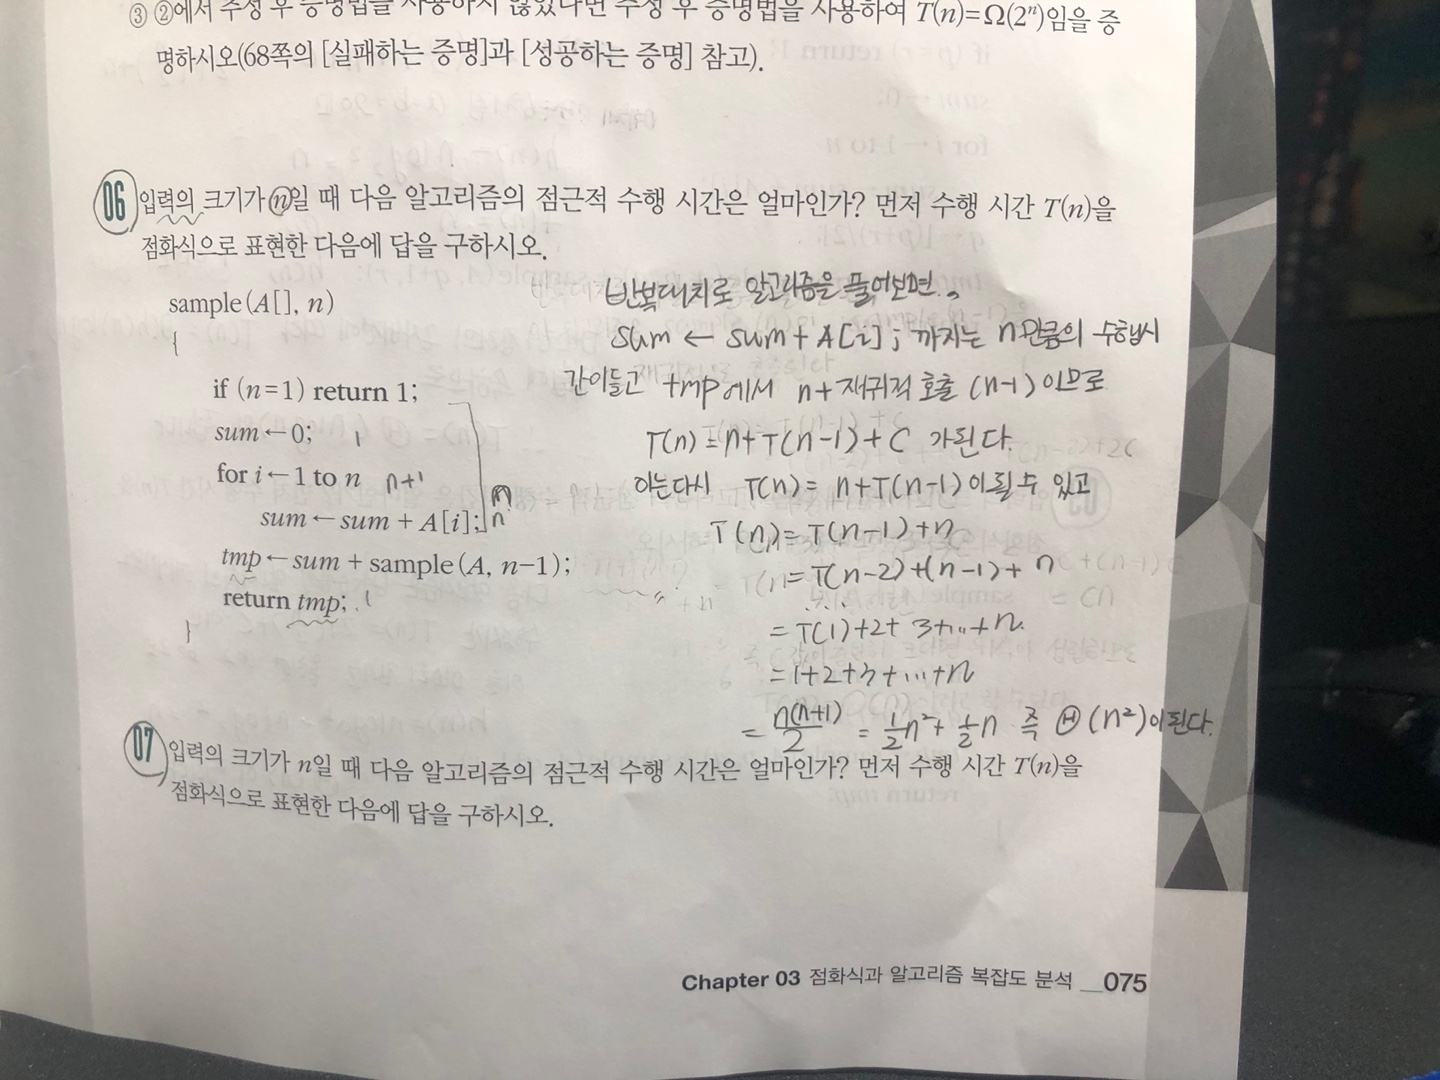 ③ ②에서 추정 후 증명법을 사용하지 않았다면 추정 후 증명법을 사용하여 T(n)=Ω(2ⁿ)임을 증
명하시오(68쪽의 [실패하는 증명]과 [성공하는 증명] 참고).
06 입력의 크기가 n일 때 다음 알고리즘의 점근적 수행 시간은 얼마인가? 먼저 수행 시간 T(n)을
점화식으로 표현한 다음에 답을 구하시오.
sample(A[], n)
{
if (n=1) return 1;
sum←0; 1
for i←1 to n n+1
sum←sum + A[i]; n
tmp←sum + sample(A, n-1);
return tmp; 1
}
반복대치로 알고리즘을 풀어보면,
sum ← sum + A[i]; 까지는 n만큼의 수행시
간이들고 tmp에서 n+재귀적 호출 (n-1) 이므로
T(n) = n+T(n-1)+C 가된다.
이는다시 T(n) = n+T(n-1)이 될 수 있고
T(n) = T(n-1)+n
= T(n-2)+(n-1)+n
= T(1)+2+3+...+n
= 1+2+3+...+n
= n(n+1)/2 = 1/2n²+1/2n 즉 Θ(n²)이 된다.
07 입력의 크기가 n일 때 다음 알고리즘의 점근적 수행 시간은 얼마인가? 먼저 수행 시간 T(n)을
점화식으로 표현한 다음에 답을 구하시오.
Chapter 03 점화식과 알고리즘 복잡도 분석 __075